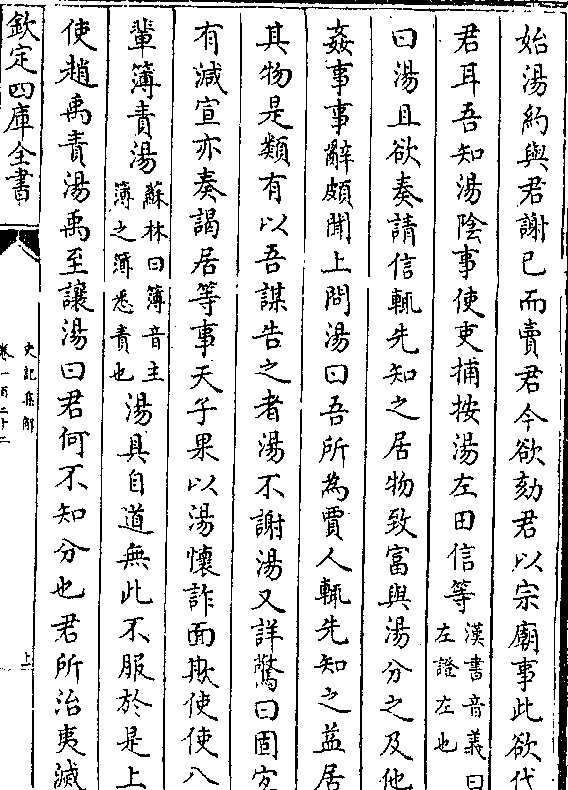 始湯約與君謝已而賣君今欲劾君以宗廟事此欲代
君耳吾知湯陰事使吏捕按湯左田信等漢書音義曰左證左也
曰湯且欲奏請信輒先知之居物致富與湯分之及他
姦事事辭頗聞上問湯曰吾所為賈人輒先知之益居
其物是類有以吾謀告之者湯不謝湯又詳驚曰固宜
有減宣亦奏謁居等事天子果以湯懷詐面欺使使八
輩簿責湯蘇林曰簿音主簿之簿悉責也湯具自道無此不服於是上
使趙禹責湯禹至讓湯曰君何不知分也君所治夷滅
欽定四庫全書
史記集解
卷一百二十二